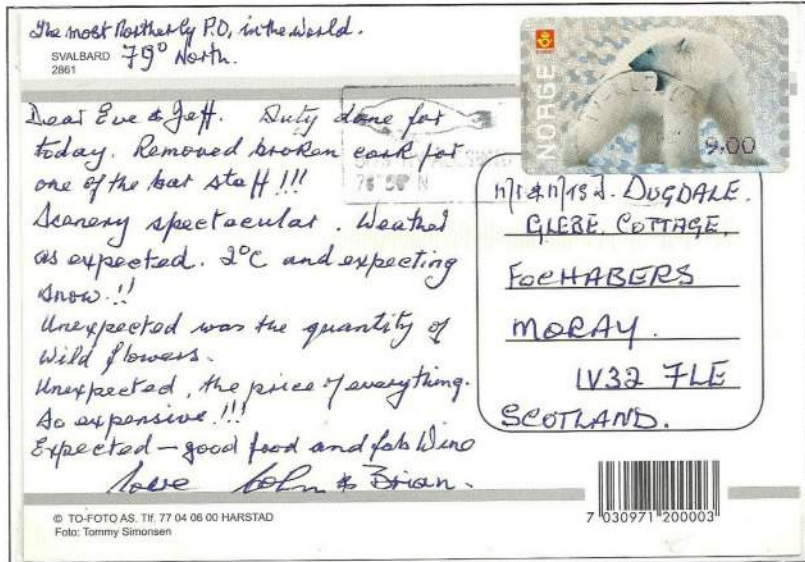 The most Northerly P.O. in the World.
SVALBARD 79° North.
2861
NORGE
9.00
Dear Eve & Jeff. Duty done for
today. Removed broken cork for
one of the bar staff!!!
Scenery spectacular. Weather
as expected. 2°C and expecting
snow.!!
Unexpected was the quantity of
Wild flowers.
Unexpected, the price of everything.
So expensive!!!
Expected – good food and fab Wine
Love & Brian.
78° 56' N
J. DUGDALE.
GLEBE COTTAGE,
FOCHABERS
MORAY.
IV32 7LE
SCOTLAND.
© TO-FOTO AS. Tlf. 77 04 06 00 HARSTAD
Foto: Tommy Simonsen
7 030971 200003